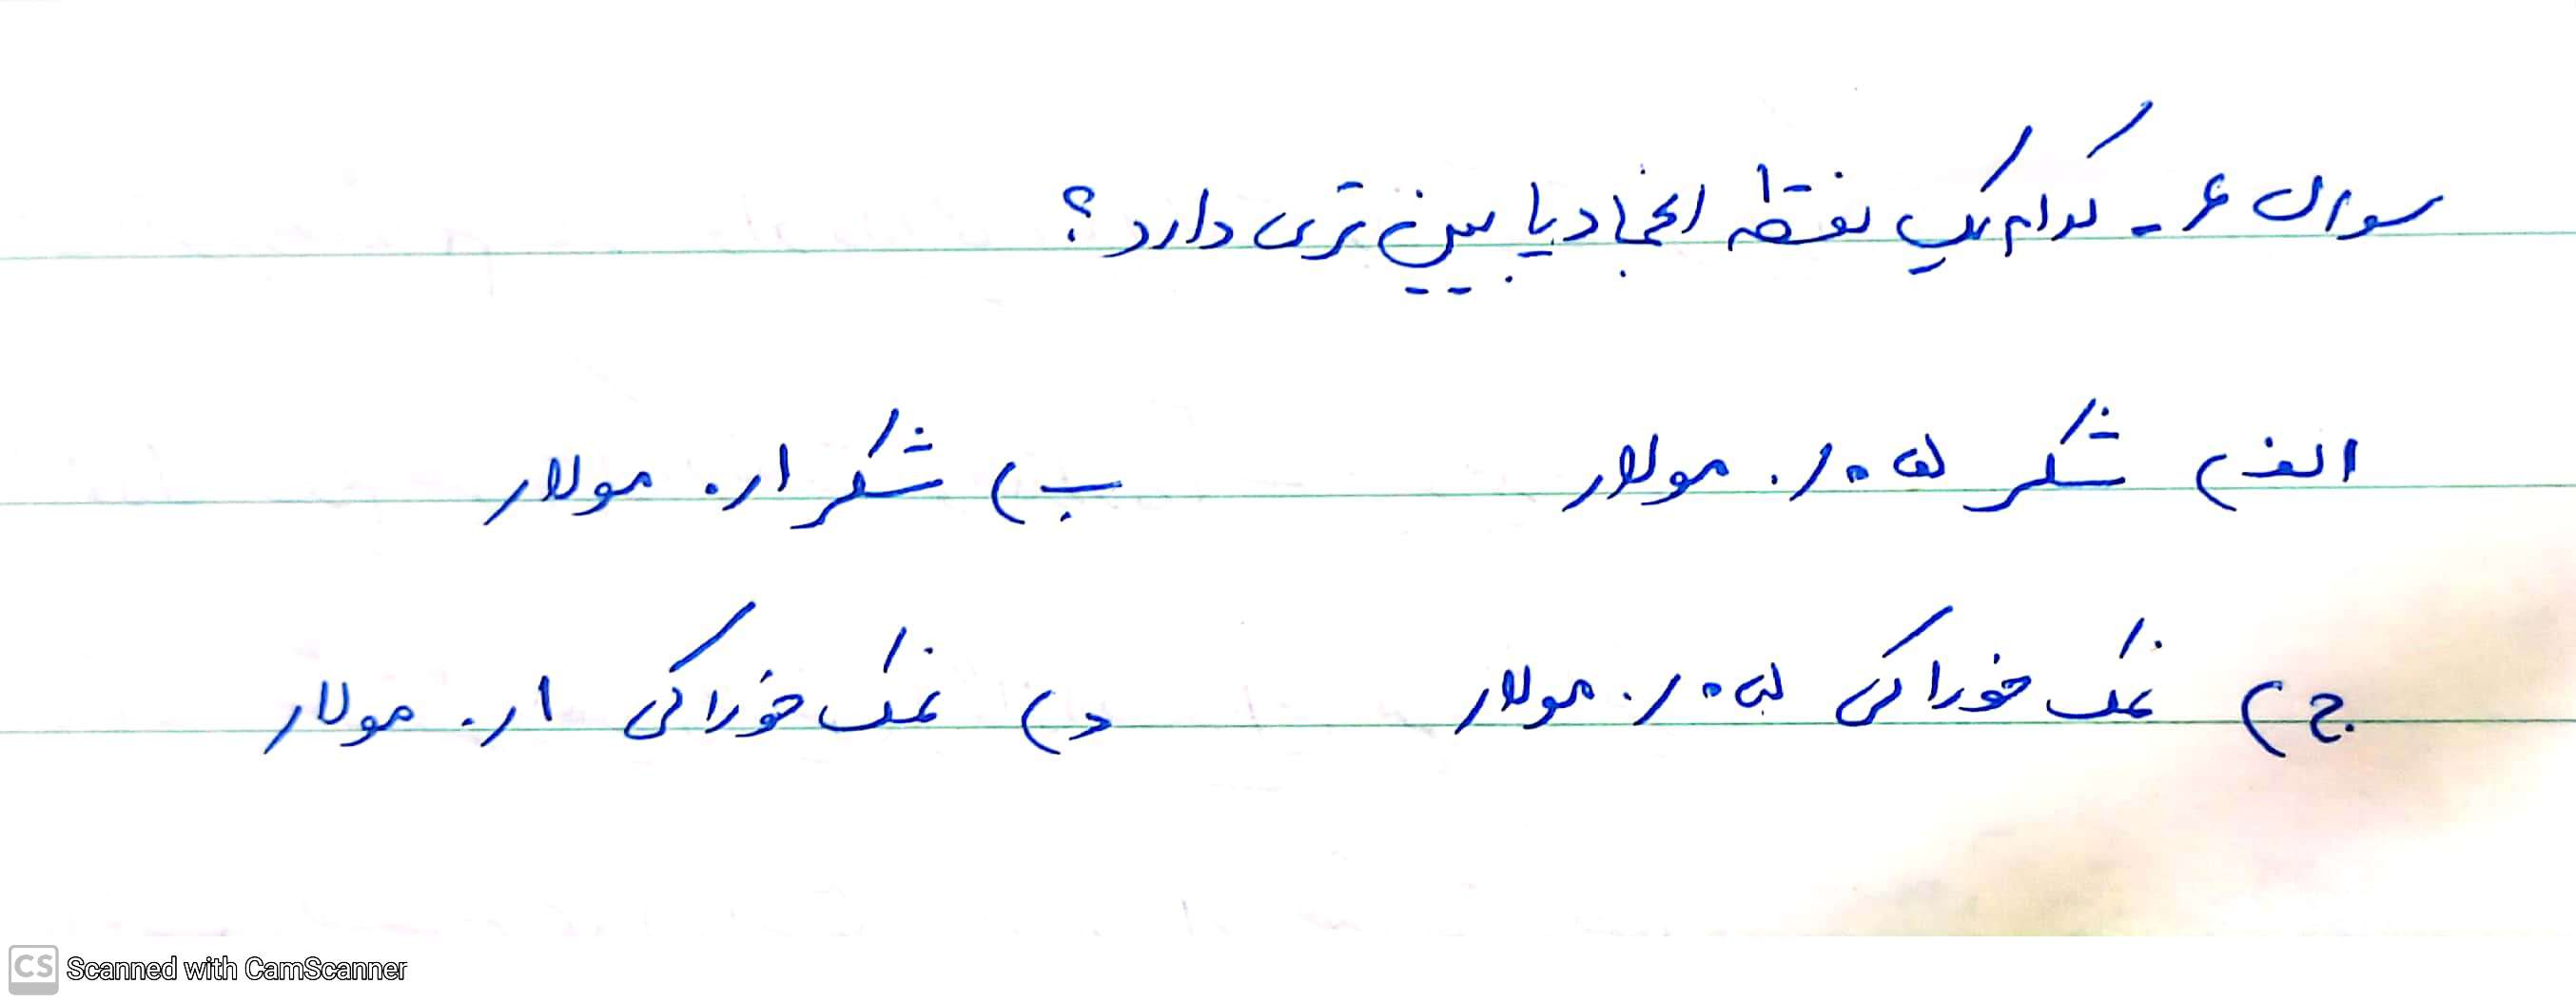 سوال ۶ - کدام یک نقطه انجماد پایین تری دارد؟
الف) شکر ۰/۰۵ مولار ب) شکر ۰/۱ مولار
ج) نمک خوراکی ۰/۰۵ مولار د) نمک خوراکی ۰/۱ مولار
CS Scanned with CamScanner